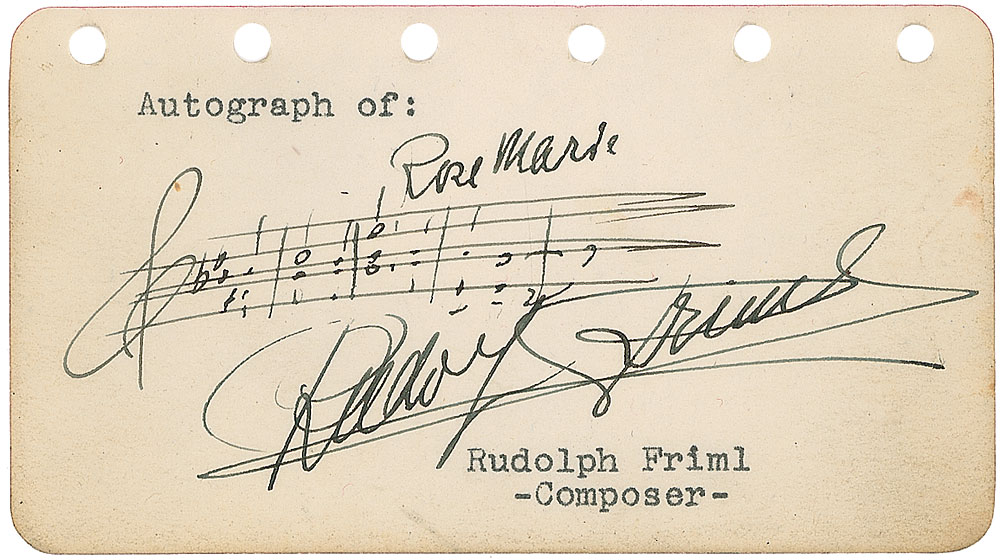 Autograph of:
Rose Marie
Rudolf Friml
Rudolph Friml
-Composer-